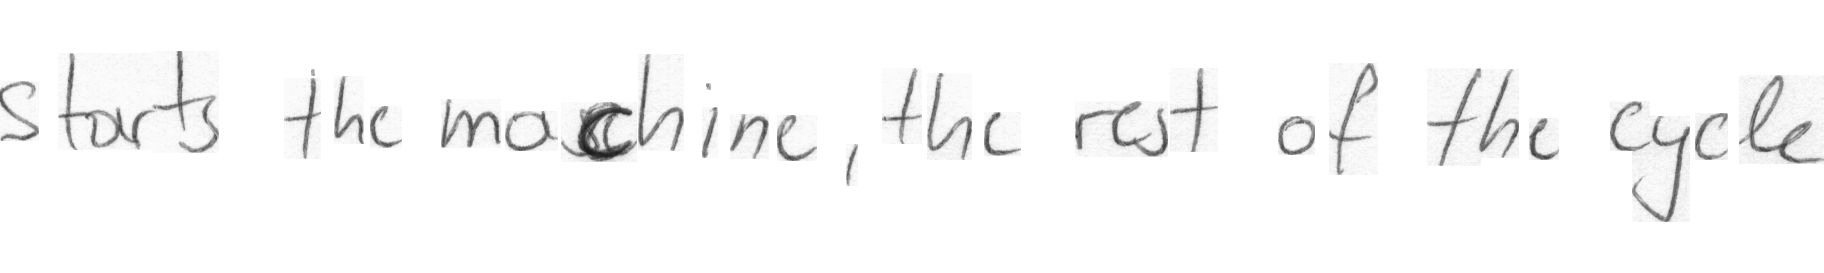 starts the machine, the rest of the cycle